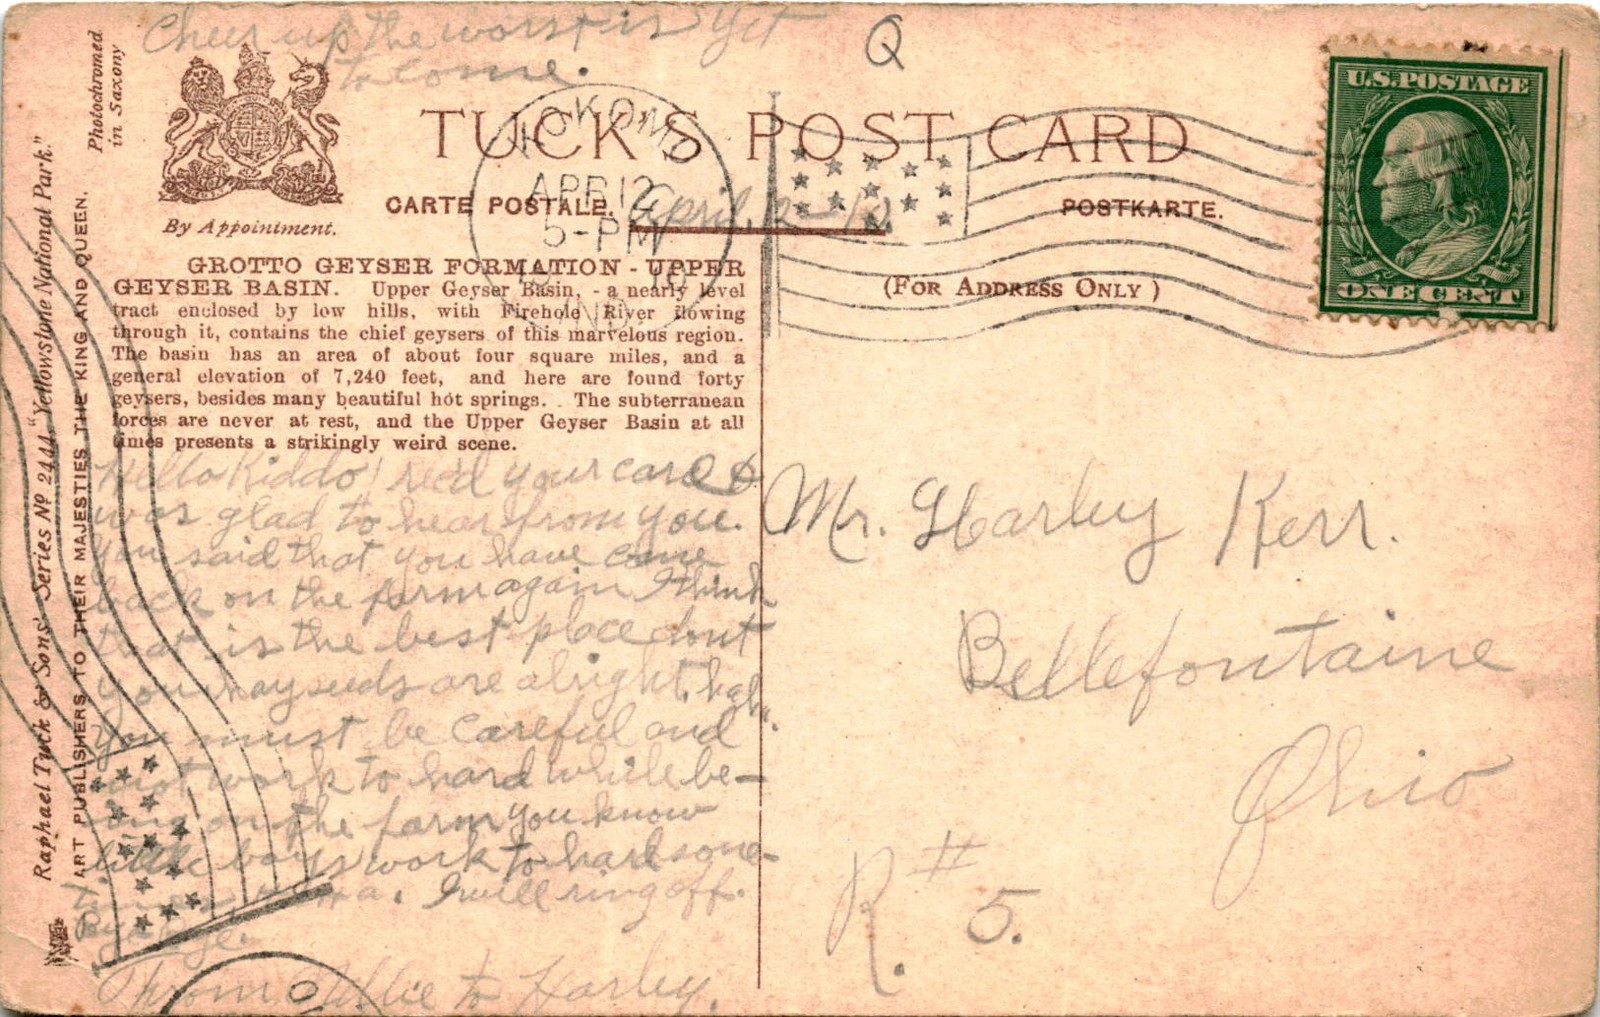 Cheer up the worst is yet
to come.
Q
Photochromed
in Saxony
By Appointment.
TUCK'S POST CARD
CARTE POSTALE.
POSTKARTE.
April, 12-10.
(FOR ADDRESS ONLY)
KOKOMO
APR 12
5-PM
IND.
U.S. POSTAGE
ONE CENT
GROTTO GEYSER FORMATION - UPPER
GEYSER BASIN. Upper Geyser Basin, - a nearly level
tract enclosed by low hills, with Firehole River flowing
through it, contains the chief geysers of this marvelous region.
The basin has an area of about four square miles, and a
general elevation of 7,240 feet, and here are found forty
geysers, besides many beautiful hot springs. The subterranean
forces are never at rest, and the Upper Geyser Basin at all
times presents a strikingly weird scene.
Raphael Tuck & Sons' Series Nº 2444. "Yellowstone National Park."
ART PUBLISHERS TO THEIR MAJESTIES THE KING AND QUEEN.
Hello Kiddo! rec'd your card &
was glad to hear from you.
You said that you have come
back on the farm again I think
that is the best place dont
you hayseeds are alright, hah.
You must be careful and
not work to hard while be-
ing on the farm you know
little boys work to hard some-
times. I will ring off.
Bye Bye.
From Ollie to Harley.
Mr. Harley Kerr.
Bellefontaine
Ohio
R # 5.